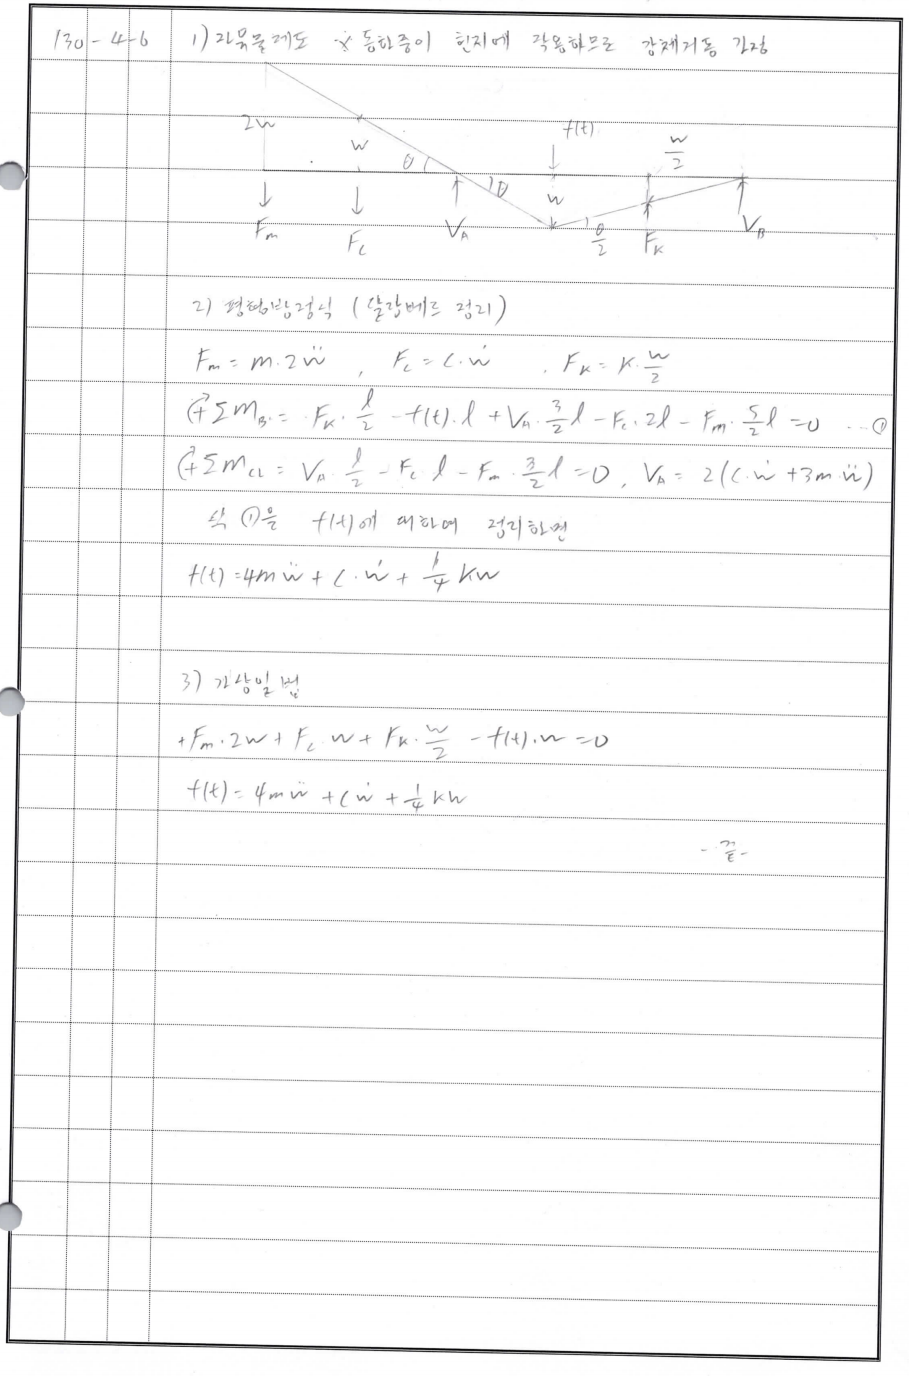 130-4-6 1) 자유물체도 ※ 동하중이 힌지에 작용하므로 강체거동 가정
2w w θ θ f(t) w w/2
F_m F_c V_A θ/2 F_K V_B
2) 평형방정식 (달랑베르 정리)
F_m = m·2ẅ , F_c = C·ẇ , F_K = K·w/2
(+ΣM_B = F_K·l/2 - f(t)·l + V_A·3/2l - F_c·2l - F_m·5/2l = 0 ... ①
(+ΣM_CL = V_A·l/2 - F_c·l - F_m·3/2l = 0 , V_A = 2(C·ẇ + 3mẅ)
식 ①을 f(t)에 대하여 정리하면
f(t) = 4mẅ + C·ẇ + 1/4 Kw
3) 가상일법
+F_m·2w + F_c·w + F_K·w/2 - f(t)·w = 0
f(t) = 4mẅ + Cẇ + 1/4 Kw
- 끝 -